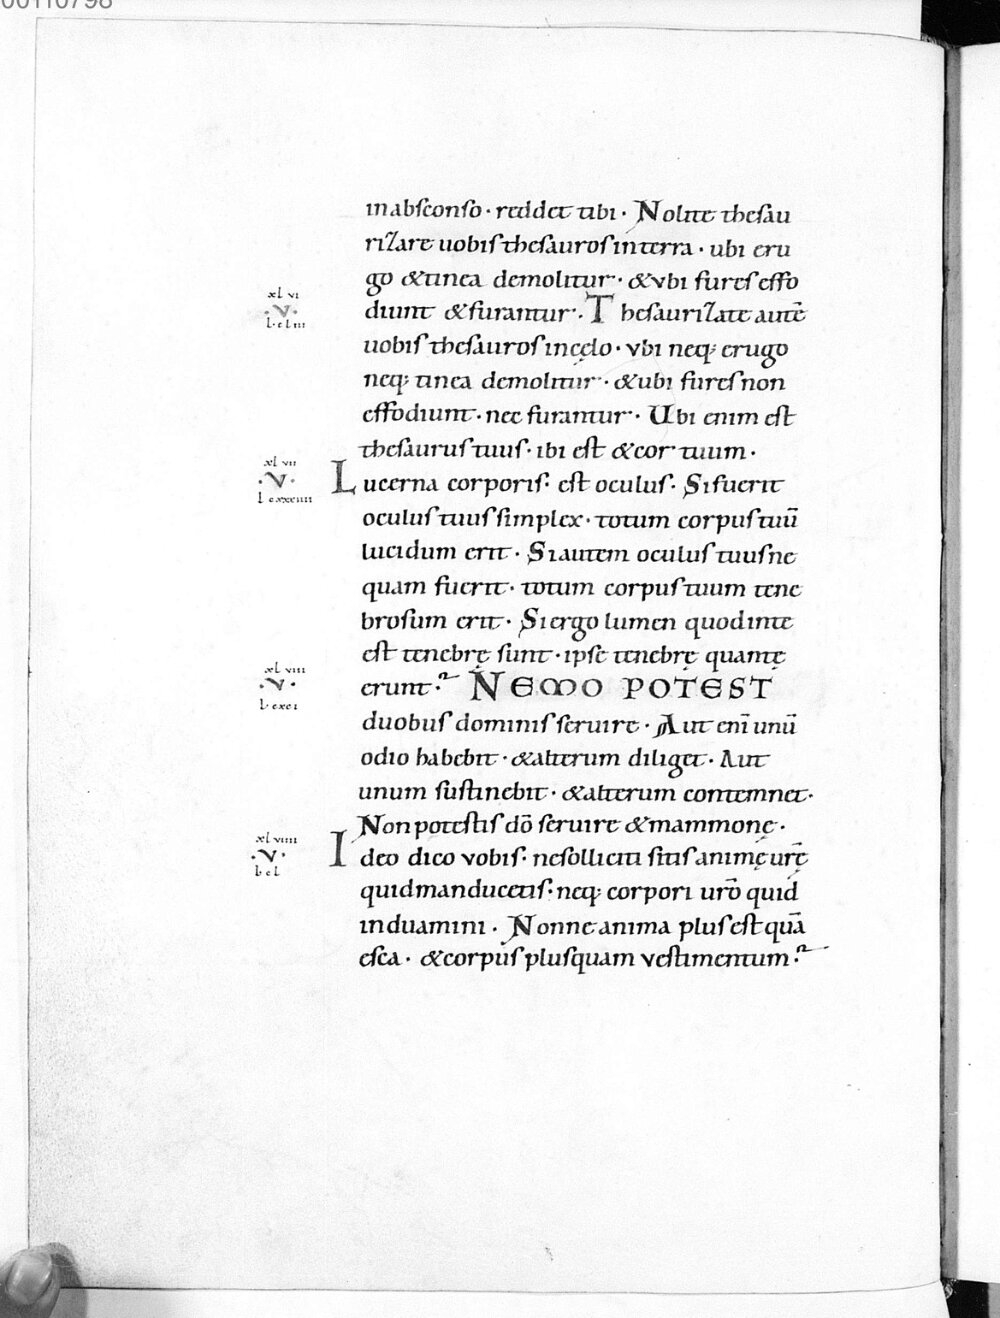 00110798
in absconso · reddet tibi · Nolite thesau
rizare uobis thesauros in terra · ubi eru
go & tinea demolitur · & vbi fures effo
diunt & furantur · Thesaurizate autē
xl vi
· V ·
l · cliii
uobis thesauros in cęlo · vbi neq; erugo
neq; tinea demolitur · & ubi fures non
effodiunt · nec furantur · Ubi enim est
thesaurus tuus · ibi est & cor tuum ·
xl vii
· V ·
Lucerna corporis · est oculus · Si fuerit
oculus tuus simplex · totum corpus tuū
lucidum erit · Si autem oculus tuus ne
quam fuerit · totum corpus tuum tene
brosum erit · Si ergo lumen quod in te
est tenebrę sunt · ipse tenebrę quantę
xl viii
· V ·
l · cxci
erunt · NEMO POTEST
duobus dominis seruire · Aut enī unū
odio habebit · & alterum diliget · Aut
unum sustinebit · & alterum contemnet ·
Non potestis dō seruire & mammonę ·
xl viiii
· V ·
l · cl
Ideo dico vobis · ne solliciti sitis animę urę̄
quid manducetis · neq; corpori urō quid
induamini · Nonne anima plus est quā
esca · & corpus plus quam vestimentum ·